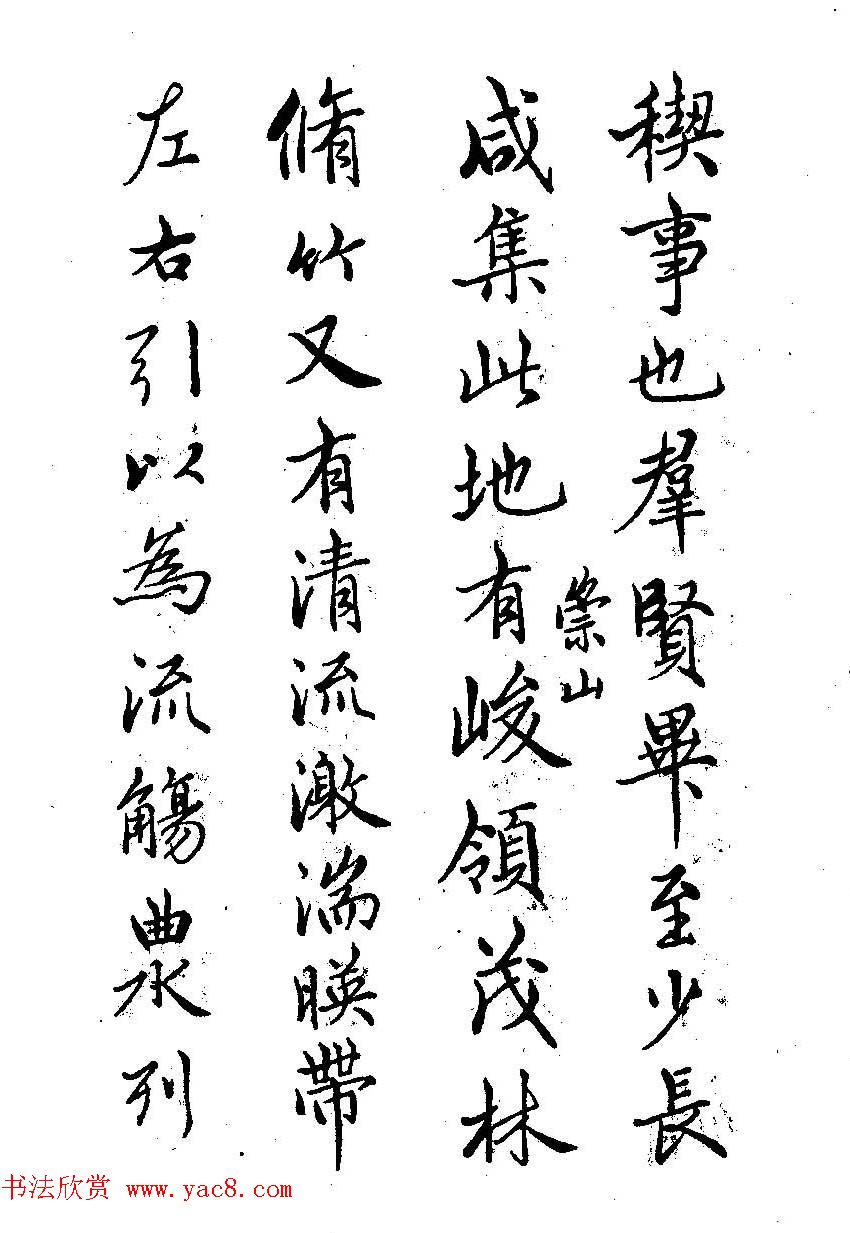 稧事也羣賢畢至少長
咸集此地有崇山峻領茂林
脩竹又有清流激湍暎帶
左右引以為流觴曲水列
书法欣赏 www.yac8.com